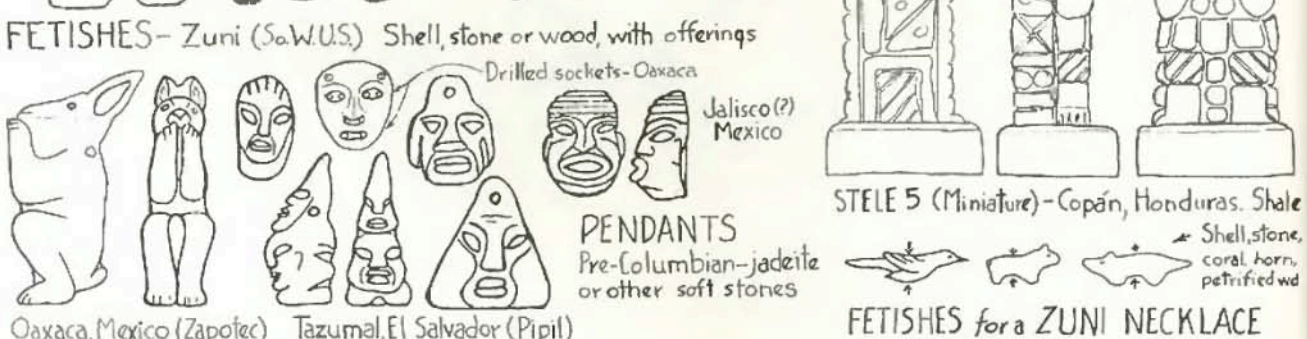 FETISHES- Zuni (So.W.U.S.) Shell, stone or wood, with offerings
Drilled sockets-Oaxaca
Jalisco(?)
Mexico
PENDANTS
Pre-Columbian-jadeite
or other soft stones
Oaxaca, Mexico (Zapotec) Tazumal, El Salvador (Pipil)
STELE 5 (Miniature)-Copán, Honduras. Shale
Shell, stone,
coral, horn,
petrified wd
FETISHES for a ZUNI NECKLACE